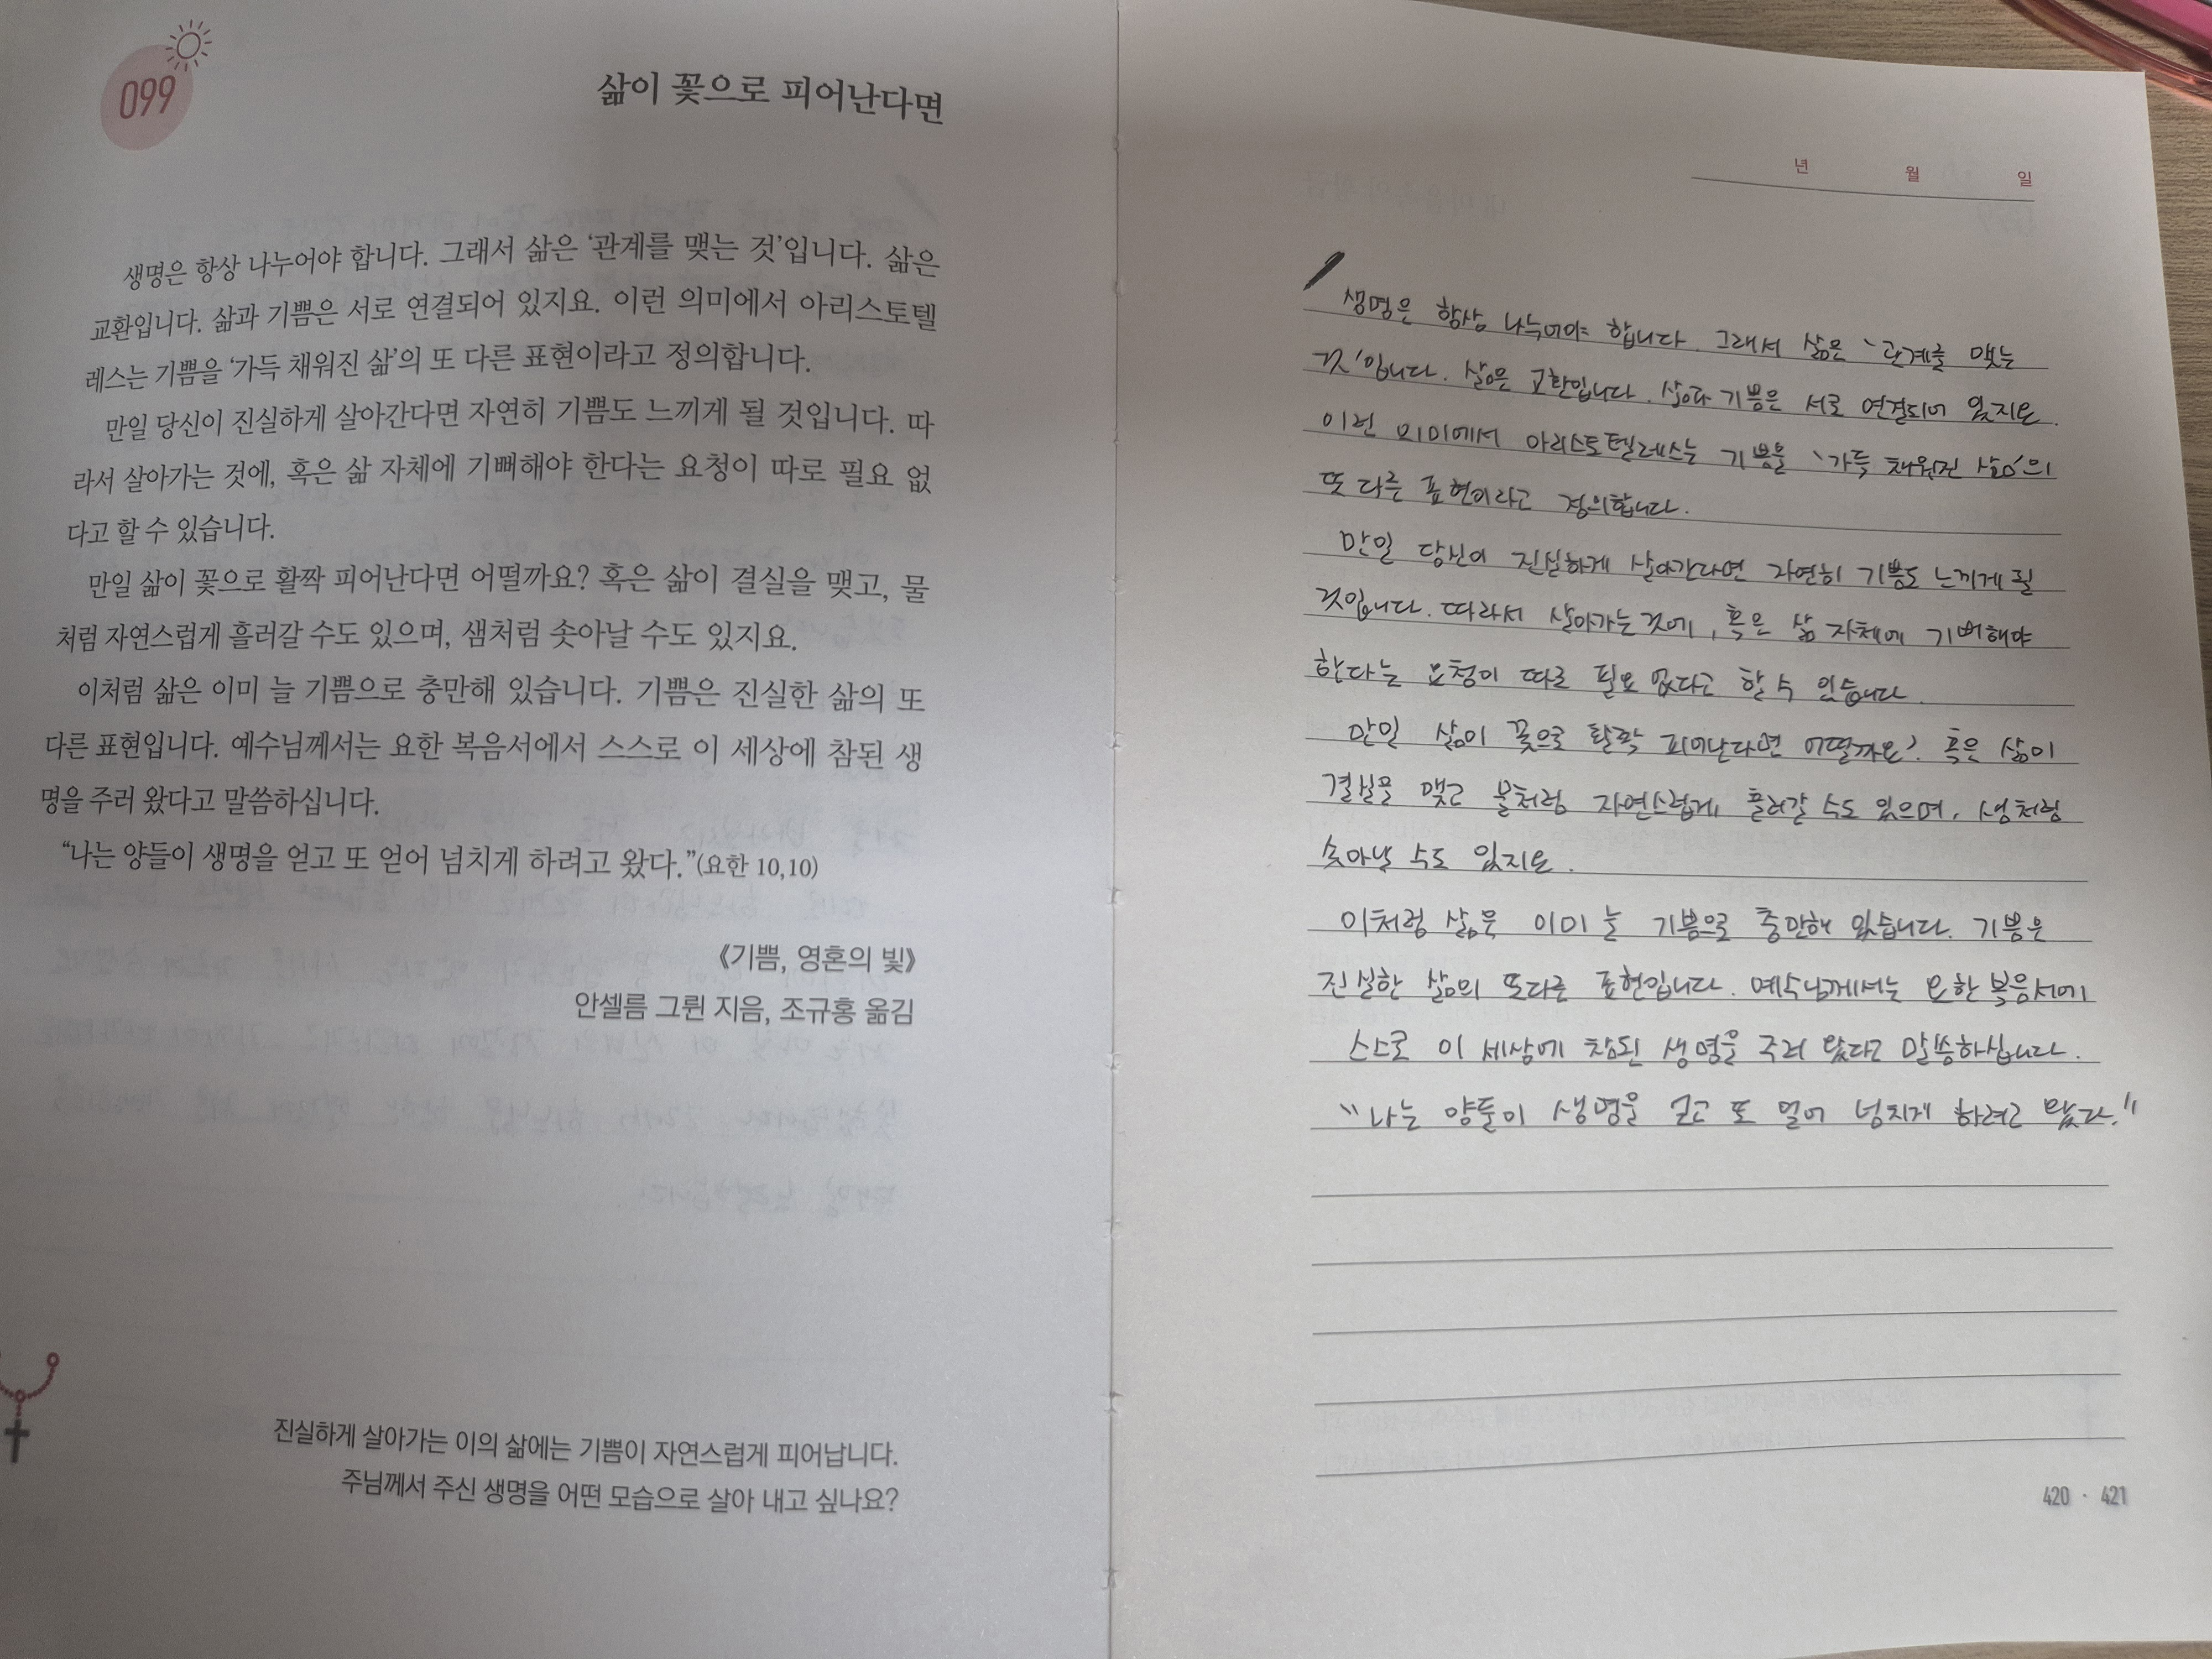 099
삶이 꽃으로 피어난다면
생명은 항상 나누어야 합니다. 그래서 삶은 ‘관계를 맺는 것’입니다. 삶은
교환입니다. 삶과 기쁨은 서로 연결되어 있지요. 이런 의미에서 아리스토텔
레스는 기쁨을 ‘가득 채워진 삶’의 또 다른 표현이라고 정의합니다.
만일 당신이 진실하게 살아간다면 자연히 기쁨도 느끼게 될 것입니다. 따
라서 살아가는 것에, 혹은 삶 자체에 기뻐해야 한다는 요청이 따로 필요 없
다고 할 수 있습니다.
만일 삶이 꽃으로 활짝 피어난다면 어떨까요? 혹은 삶이 결실을 맺고, 물
처럼 자연스럽게 흘러갈 수도 있으며, 샘처럼 솟아날 수도 있지요.
이처럼 삶은 이미 늘 기쁨으로 충만해 있습니다. 기쁨은 진실한 삶의 또
다른 표현입니다. 예수님께서는 요한 복음서에서 스스로 이 세상에 참된 생
명을 주러 왔다고 말씀하십니다.
“나는 양들이 생명을 얻고 또 얻어 넘치게 하려고 왔다.”(요한 10,10)
《기쁨, 영혼의 빛》
안셀름 그륀 지음, 조규홍 옮김
진실하게 살아가는 이의 삶에는 기쁨이 자연스럽게 피어납니다.
주님께서 주신 생명을 어떤 모습으로 살아 내고 싶나요?
년 월 일
생명은 항상 나누어야 합니다. 그래서 삶은 ‘관계를 맺는
것’입니다. 삶은 교환입니다. 삶과 기쁨은 서로 연결되어 있지요.
이런 의미에서 아리스토텔레스는 기쁨을 ‘가득 채워진 삶’의
또 다른 표현이라고 정의합니다.
만일 당신이 진실하게 살아간다면 자연히 기쁨도 느끼게 될
것입니다. 따라서 살아가는 것에, 혹은 삶 자체에 기뻐해야
한다는 요청이 따로 필요 없다고 할 수 있습니다.
만일 삶이 꽃으로 활짝 피어난다면 어떨까요? 혹은 삶이
결실을 맺고 물처럼 자연스럽게, 흘러갈 수도 있으며, 샘처럼
솟아날 수도 있지요.
이처럼 삶은 이미 늘 기쁨으로 충만해 있습니다. 기쁨은
진실한 삶의 또다른 표현입니다. 예수님께서는 요한 복음서에
스스로 이 세상에 참된 생명을 주러 왔다고 말씀하십니다.
“나는 양들이 생명을 얻고 또 얻어 넘치게 하려고 왔다.”
420 · 421